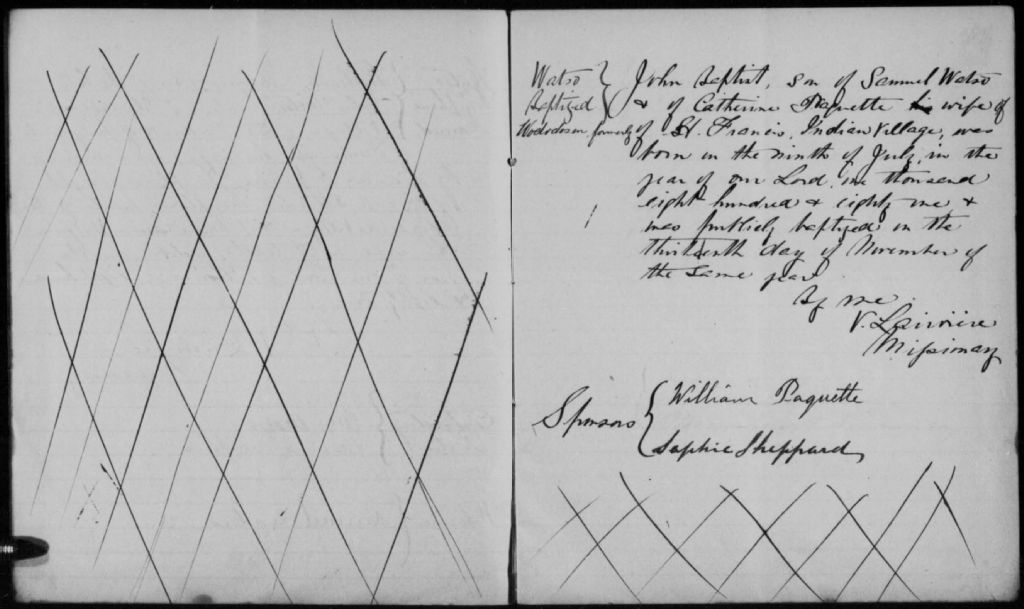 Watso
Baptized
formerly
John Baptist, son of Samuel Watso
& of Catherine Paquette his wife of
of St. Francis, Indian Village, was
born in the ninth of July, in the
year of our Lord, one thousand
eight hundred & eighty one &
was publicly baptized on the
thirteenth day of November of
the same year
By me
V. Larivière
Missionary
Sponsors
William Paquette
Sophie Sheppard